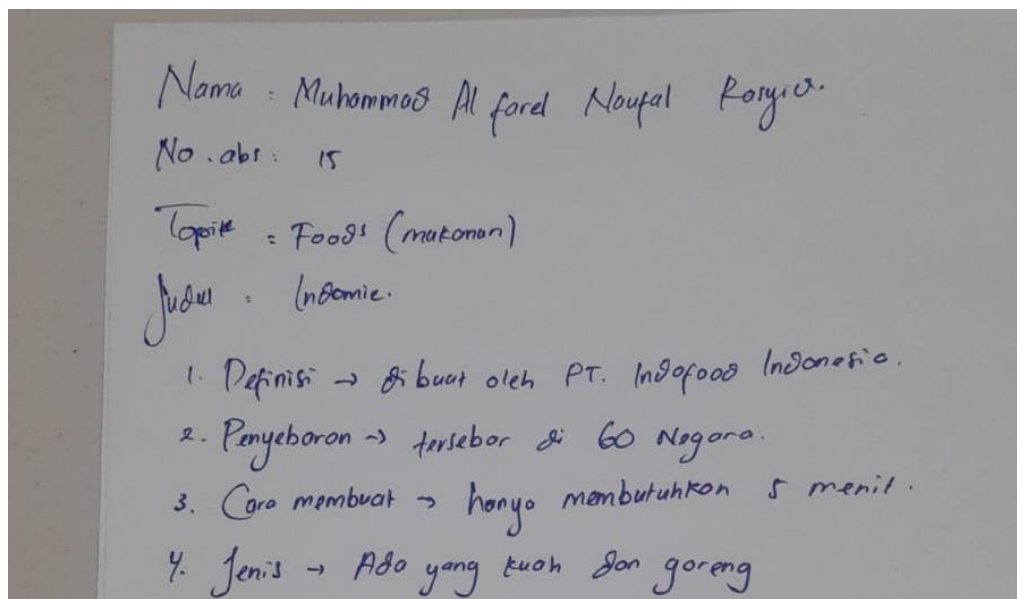 Nama : Muhammad Al farel Noufal Rosyid.
No. abs : 15
Topik : Foods (makanan)
Judul : Indomie.
1. Definisi → dibuat oleh PT. Indofood Indonesia.
2. Penyebaran → tersebar di 60 Negara.
3. Cara membuat → hanya membutuhkan 5 menit.
4. Jenis → Ada yang kuah dan goreng